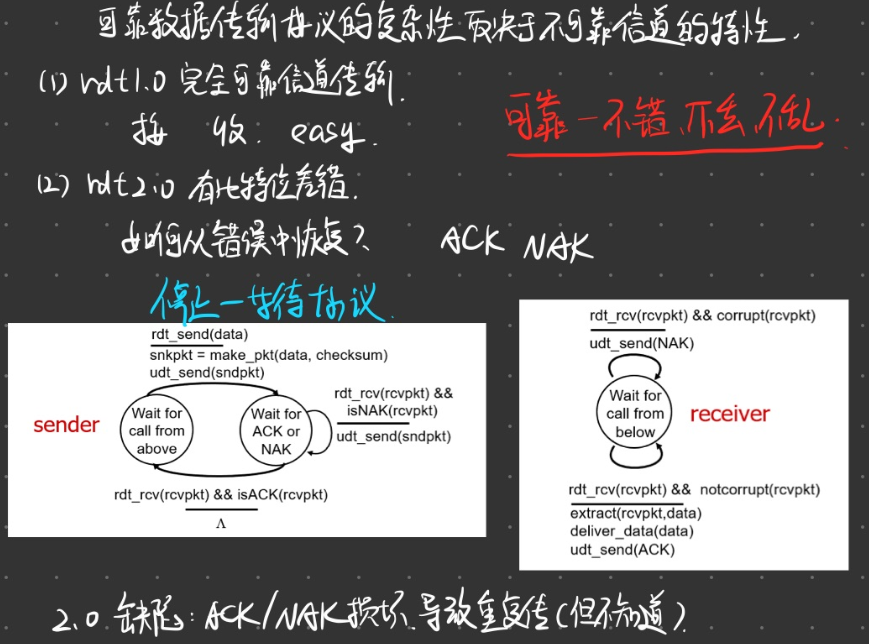 可靠数据传输协议的复杂性取决于不可靠信道的特性.
(1) rdt1.0 完全可靠信道传输.
接 收. easy.
可靠-不错、不丢、不乱.
(2) rdt2.0 有比特位差错.
如何从错误中恢复? ACK NAK
停止-等待协议
rdt_send(data)
snkpkt = make_pkt(data, checksum)
udt_send(sndpkt)
sender
Wait for
call from
above
Wait for
ACK or
NAK
rdt_rcv(rcvpkt) &&
isNAK(rcvpkt)
udt_send(sndpkt)
rdt_rcv(rcvpkt) && isACK(rcvpkt)
Λ
rdt_rcv(rcvpkt) && corrupt(rcvpkt)
udt_send(NAK)
Wait for
call from
below
receiver
rdt_rcv(rcvpkt) && notcorrupt(rcvpkt)
extract(rcvpkt,data)
deliver_data(data)
udt_send(ACK)
2.0 缺陷: ACK/NAK损坏.导致重复传(但不知道)